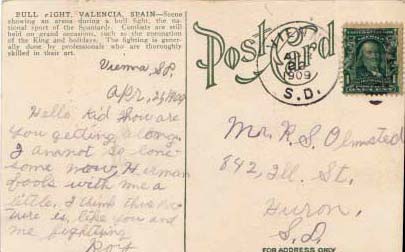 BULL FIGHT, VALENCIA, SPAIN—Scene
showing an arena during a bull fight, the na-
tional sport of the Spaniard. Combats are still
held on grand occasions, such as the coronation
of the King and holidays. The fighting is gener-
ally done by professionals who are thoroughly
skilled in their art.
Vienna, S.D.
Apr, 29 1909
Hello, kid how are
you getting along.
I am not so lone-
some now, Herman
fools with me a
little, I think this pic-
ture is, like you and
me fighting
Post Card
1909
S.D.
Mr. R.S. Olmsted
842, Ill. St.
Huron,
S.D.
FOR ADDRESS ONLY